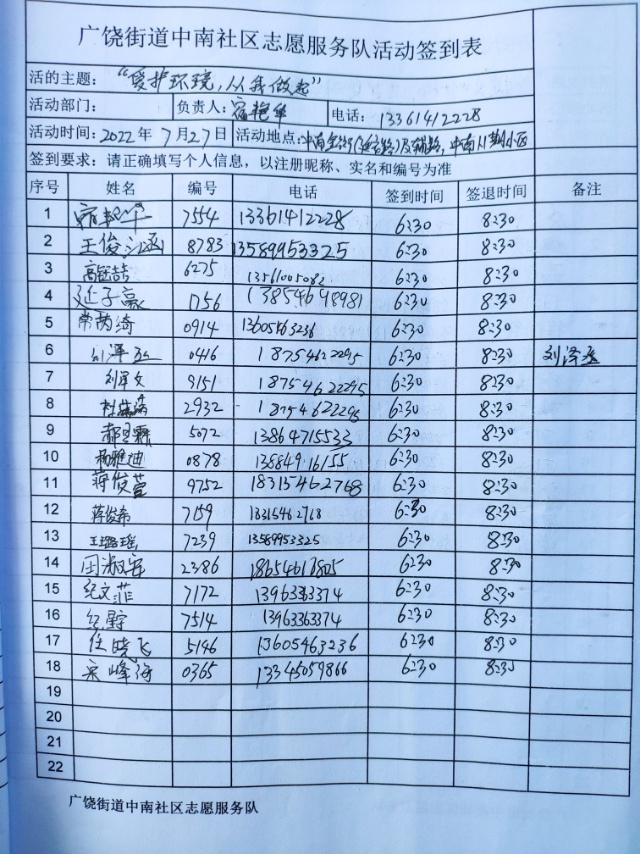 广饶街道中南社区志愿服务队活动签到表
活的主题：“爱护环境，从我做起”
活动部门： 负责人： 电话：13361412228
活动时间：2022年7月27日 活动地点：
签到要求：请正确填写个人信息，以注册昵称、实名和编号为准
序号 姓名 编号 电话 签到时间 签退时间 备注
1 7554 13361412228 6:30 8:30
2 王俊涵 8783 13589953325 6:30 8:30
3 6275 13561005082 6:30 8:30
4 延子豪 1756 13854698981 6:30 8:30
5 常芮绮 0914 13605463236 6:30 8:30
6 0416 18754622295 6:30 8:30 刘泽丞
7 刘泽文 9151 18754622295 6:30 8:30
8 2932 18754622295 6:30 8:30
9 5072 13864715533 6:30 8:30
10 杨雅迪 0878 6:30 8:30
11 蒋俊萱 9752 18315462768 6:30 8:30
12 蒋俊希 7159 18315462768 6:30 8:30
13 王璐瑶 7239 13589953325 6:30 8:30
14 田淑军 2386 6:30 8:30
15 纪文菲 7172 13963363374 6:30 8:30
16 7514 13963363374 6:30 8:30
17 任晓飞 5146 13605463236 6:30 8:30
18 宋峰海 0365 13345059866 6:30 8:30
19
20
21
22
广饶街道中南社区志愿服务队